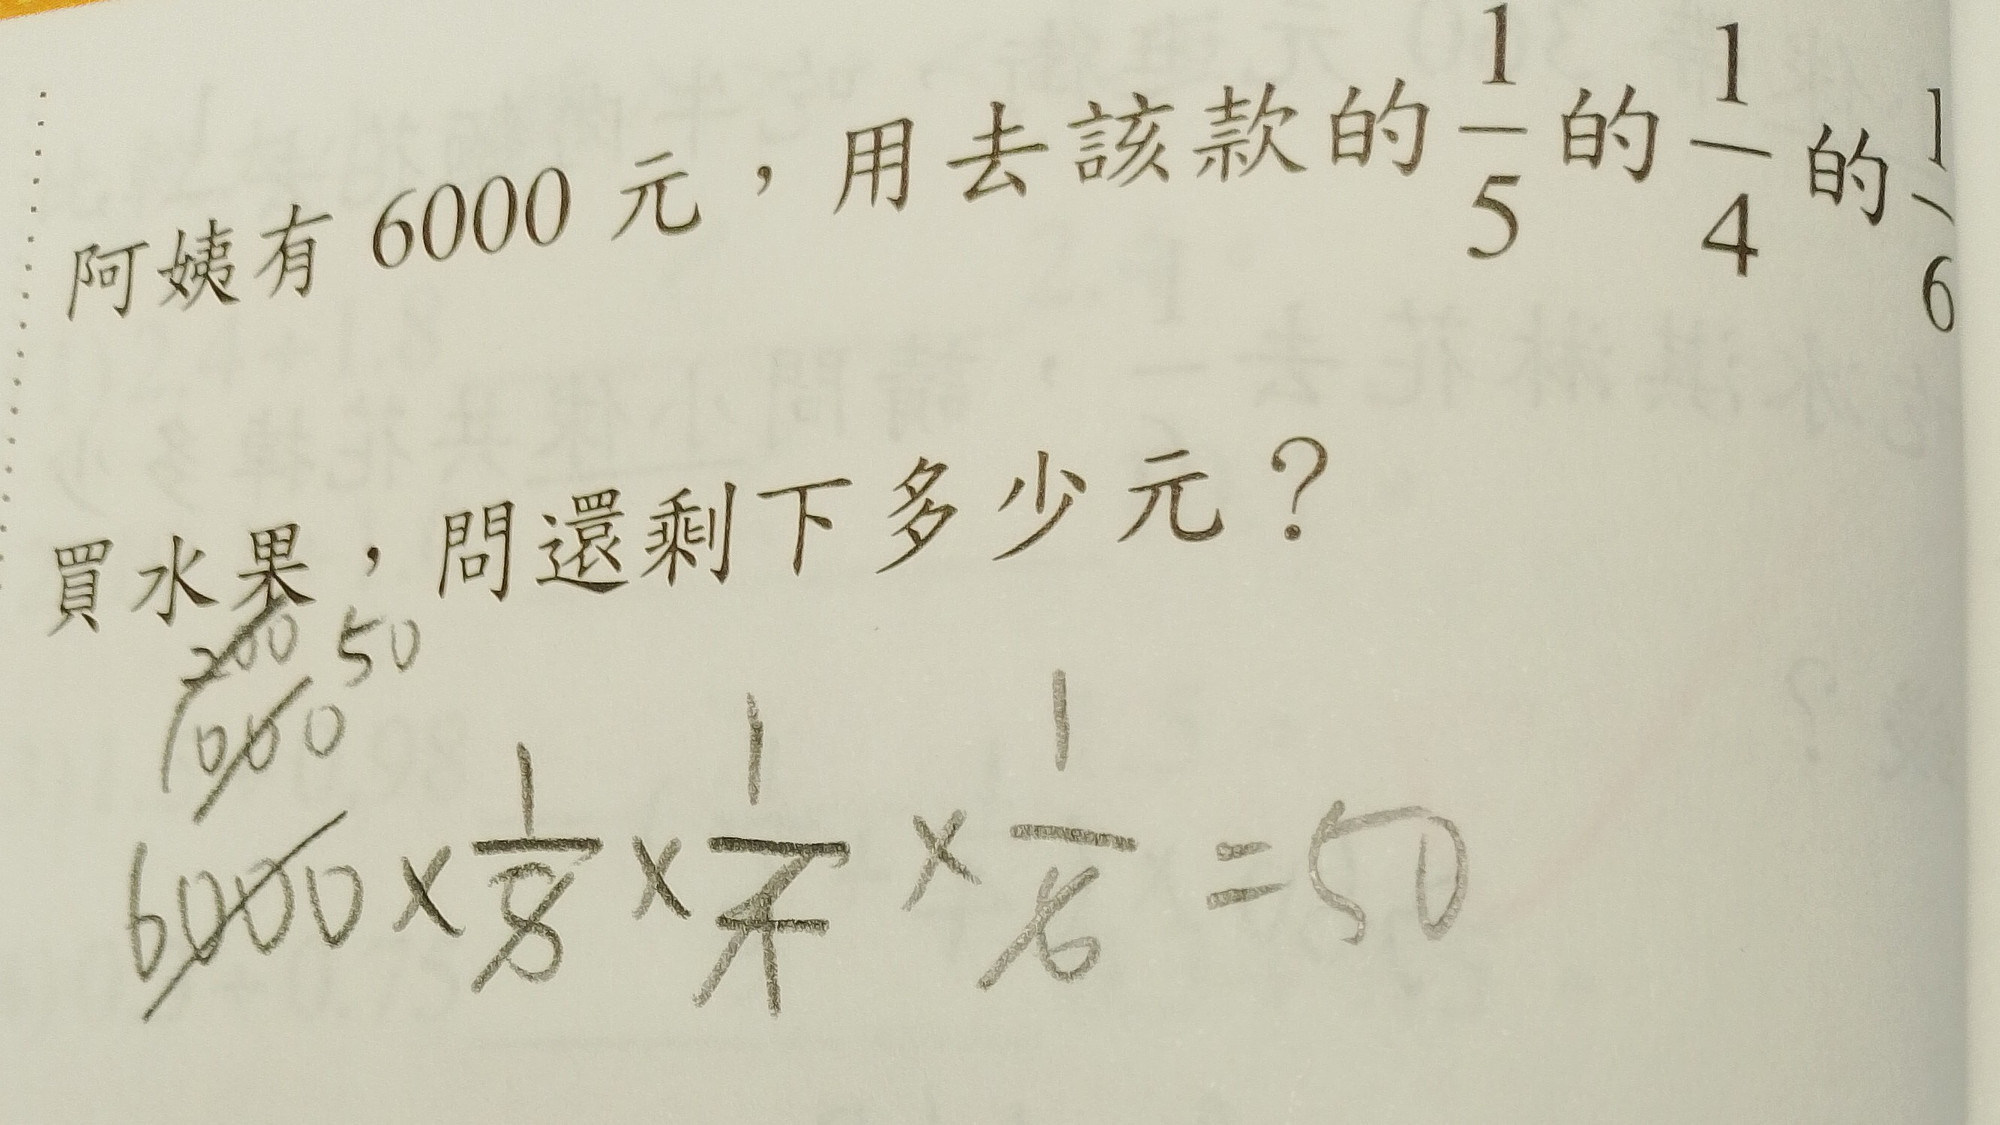 阿姨有 6000 元，用去該款的 1/5 的 1/4 的 1/6
買水果，問還剩下多少元？
200 50
1000
6000 × 1/5 × 1/4 × 1/6 = 50